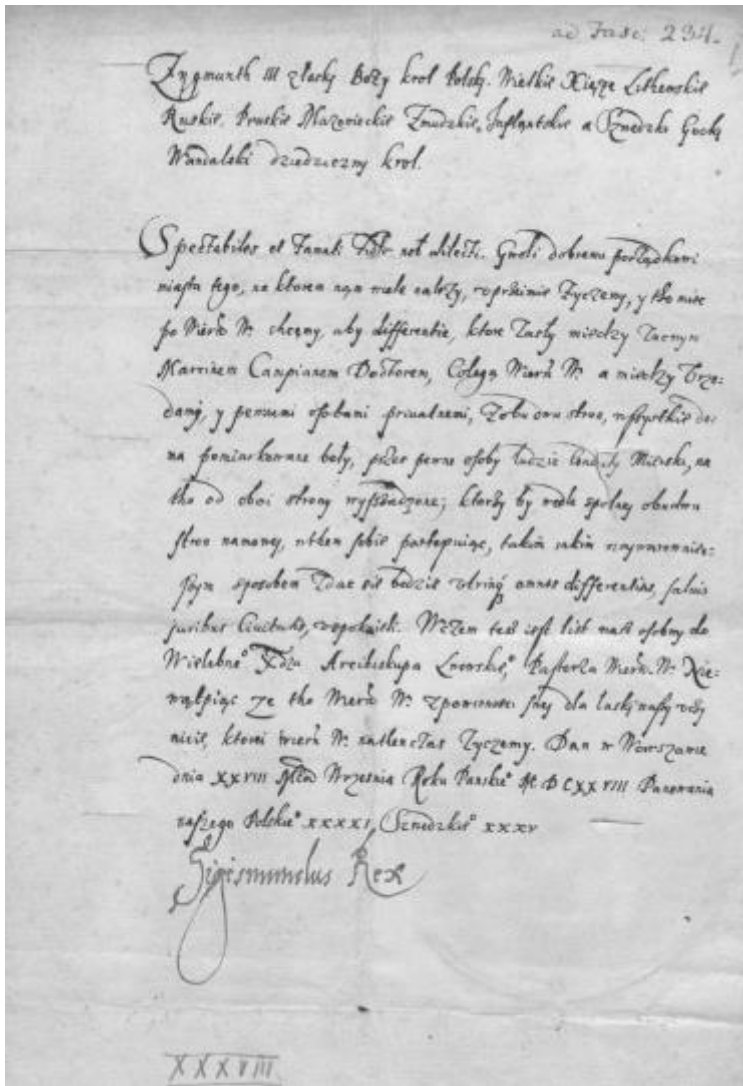 ad Fasc: 234.
Zygmunth III z łasky Boży krol Polsky. Wielkie Xiąże Lithewskie
Ruskie, Pruskie Mazowieckie Zmudzkie, Inflantskie a Szwedzki Gocky
Wandalski dziedziczny krol.
Spectabiles et Famati Fidel: nob: dilecti. Gwoli dobremu porządkowi
miasta tego, na ktorem nąm wiele należy, uprzeimie Zyczemy, y tho miec
po Wierń: W. chcemy, aby differentie, ktore Zaszły miedzy Zacnym
Marcinem Campianem Doctorem, Collegą Wierń W. a miedzy Vrze:
damy, y pewnemi osobami priuatnemi, Zobu dwu stron, wszystkie do:
na pomiarkowane beły, przez pewne osoby ludzie na
tho od oboi strony wysadzone; ktorzy by wedle spolney obudwu
stron namowy, wthem sobie postępuiąc, takim iakim
szym sposobem Zdac sie bedzie vtrinq omnes differentias, saluis
juribus Ciuitatis, vspokoili. Wtem tesz iest list nasz osobny do
Wielebne° Xdza Arcibiskupa Lwowskie°, Pasterza Wierń. W. Nie:
wątpiąc ze tho Wierń W. zpowinnosci swey dla łasky naszy vczy
nicie, ktorei wierń W. Zyczemy. Dan w Warszawie
dnia XXVIII Wrzesnia Roku Panskie° M DCXXVIII Panowania
naszego Polskie° XXXXI, Szwedzkie° XXXV
Sigismundus Rex
XXXVIII